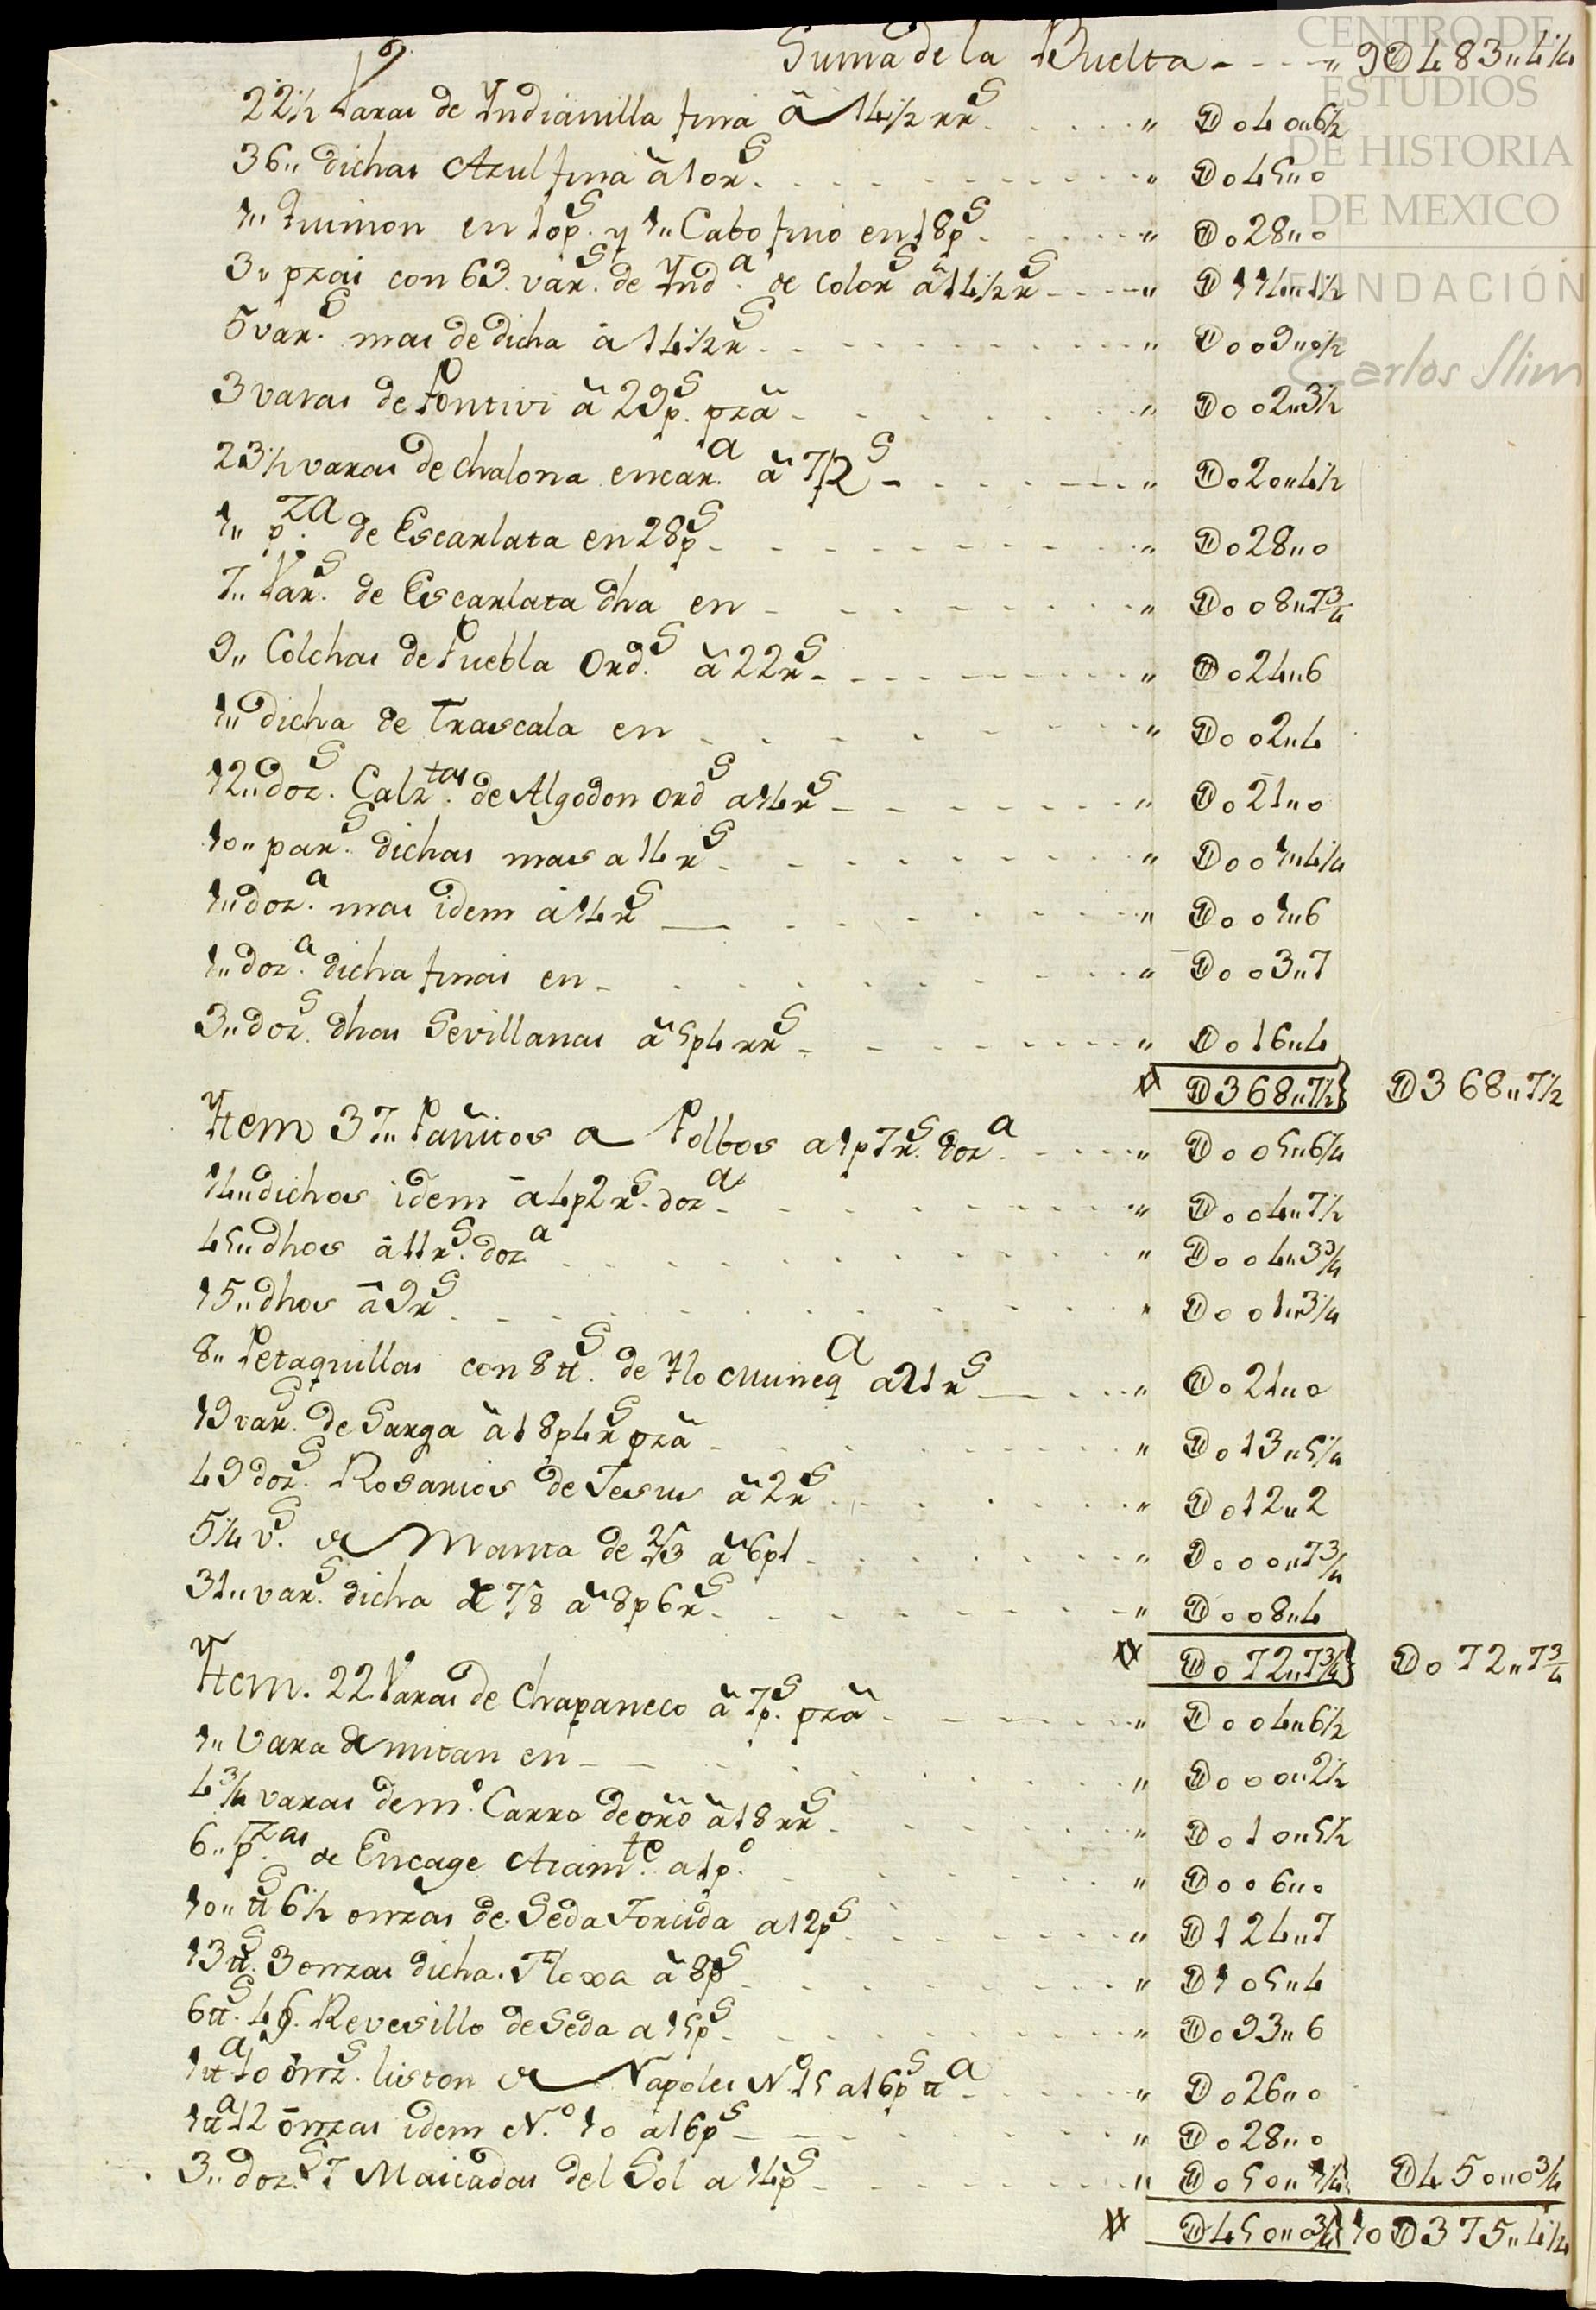 Suma de la Buelta - - - „ 9D483„4¼
22½ Varas de Yndianilla fina â 14½ rr.s „ D040„6½
36„ dichas Azul fina â 10 r.s „ D045„0
1„ Quimon en 10 p.s y 1„ Cabo fino en 18 p.s „ D028„0
3„ pzas con 63 var.s de Ynd.a de color.s â 14½ r.s „ D114„1½
5 var.s mas de dicha â 14½ r.s „ D009„0½
3 varas de Pontivi â 29 p.s pzâ „ D002„3½
23½ varas de chalona encar.a â 7/2 s „ D020„4½
1„ p.za de Escarlata en 28 p.s „ D028„0
7„ Var.s de Escarlata dha en „ D008„7¾
9„ Colchas de Puebla Ord.s â 22 r.s „ D024„6
1„ dicha de Trascala en „ D002„4
12„ doz.s Calz.tas de Algodon ord.s a 14 r.s „ D021„0
10„ par.s dichas mas a 14 r.s „ D001„4¼
1„ doz.a mas idem â 14 r.s „ D001„6
1„ doz.a dicha finas en „ D003„7
3„ doz.s dhas Sevillanas â 5p4 rr.s „ D016„4
D368„7½ D368„7½
Ytem 37„ Pañitos a Polbos a 1p7 r.s doz.a „ D005„6¼
14„ dichos idem â 4p2 r.s doz.a „ D004„7½
45„ dhos â 11 r.s doz.a „ D004„3¾
15„ dhos â 9 r.s „ D001„3¼
8„ Petaquillas con 8 tt.s de Ylo Muneq.a a 21 r.s „ D021„0
19 var.s de Sarga â 18p4 r.s pzâ „ D013„5¼
49 doz.s Rosarios de Jesus â 2 r.s „ D012„2
5¼ v.s de Manta de 2/3 â 6p1 „ D000„7¾
31„ var.s dicha de 7/8 â 8p6 r.s „ D008„4
D072„7¾ D072„7¾
Ytem. 22 Varas de Chapaneco â 7 p.s pzâ „ D004„6½
1„ Vara de mitan en „ D000„2½
4¾ varas de m.o Carro de oro â 18 rr.s „ D010„5½
6„ p.zas de Encage Aiam.te a 1 p.o „ D006„0
10„ tt.s 6½ onzas de Seda Torcida a 12 p.s „ D124„7
13 tt.s 3 onzas dicha Floxa â 8 p.s „ D105„4
6 tt.s 4 Revesillo de Seda a 15 p.s „ D093„6
1 tt.a 10 onz.s liston de Napoles N.o 15 a 16 p.s tt.a „ D026„0
1 tt.a 12 onzas idem N.o 10 a 16 p.s „ D028„0
3„ doz.s 7 Mascadas del Sol a 14 p.s „ D050„1¼ D450„0¾
D450„0¾ 10D375„4¼
CENTRO DE
ESTUDIOS
DE HISTORIA
DE MEXICO
FUNDACIÓN
Carlos Slim